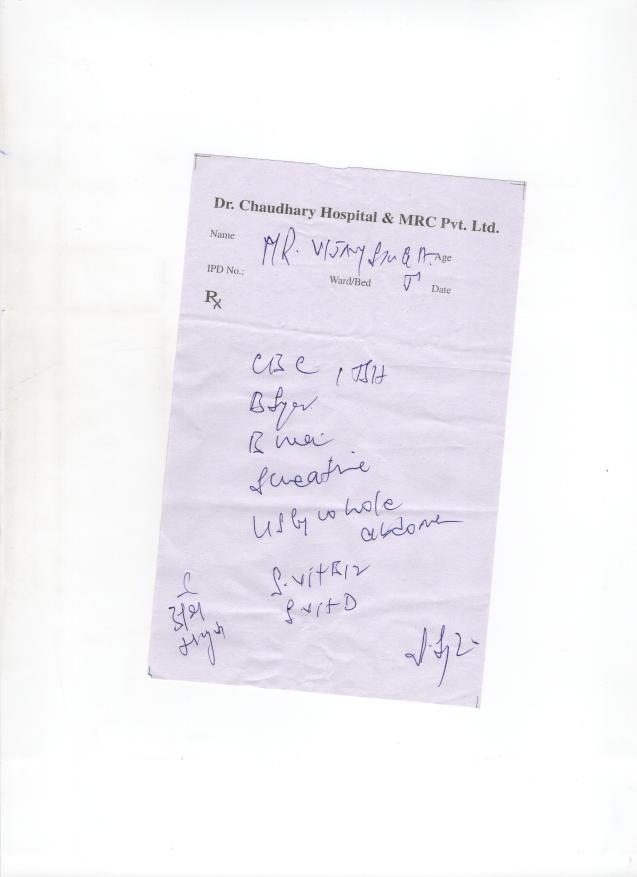 Dr. Chaudhary Hospital & MRC Pvt. Ltd.
Name MR. VIJAY Age
IPD No.: Ward/Bed Date
Rx
CBC, TSH
B Sugar
B urea
S creatine
USG whole
abdomen
S. vit B12
S vit D